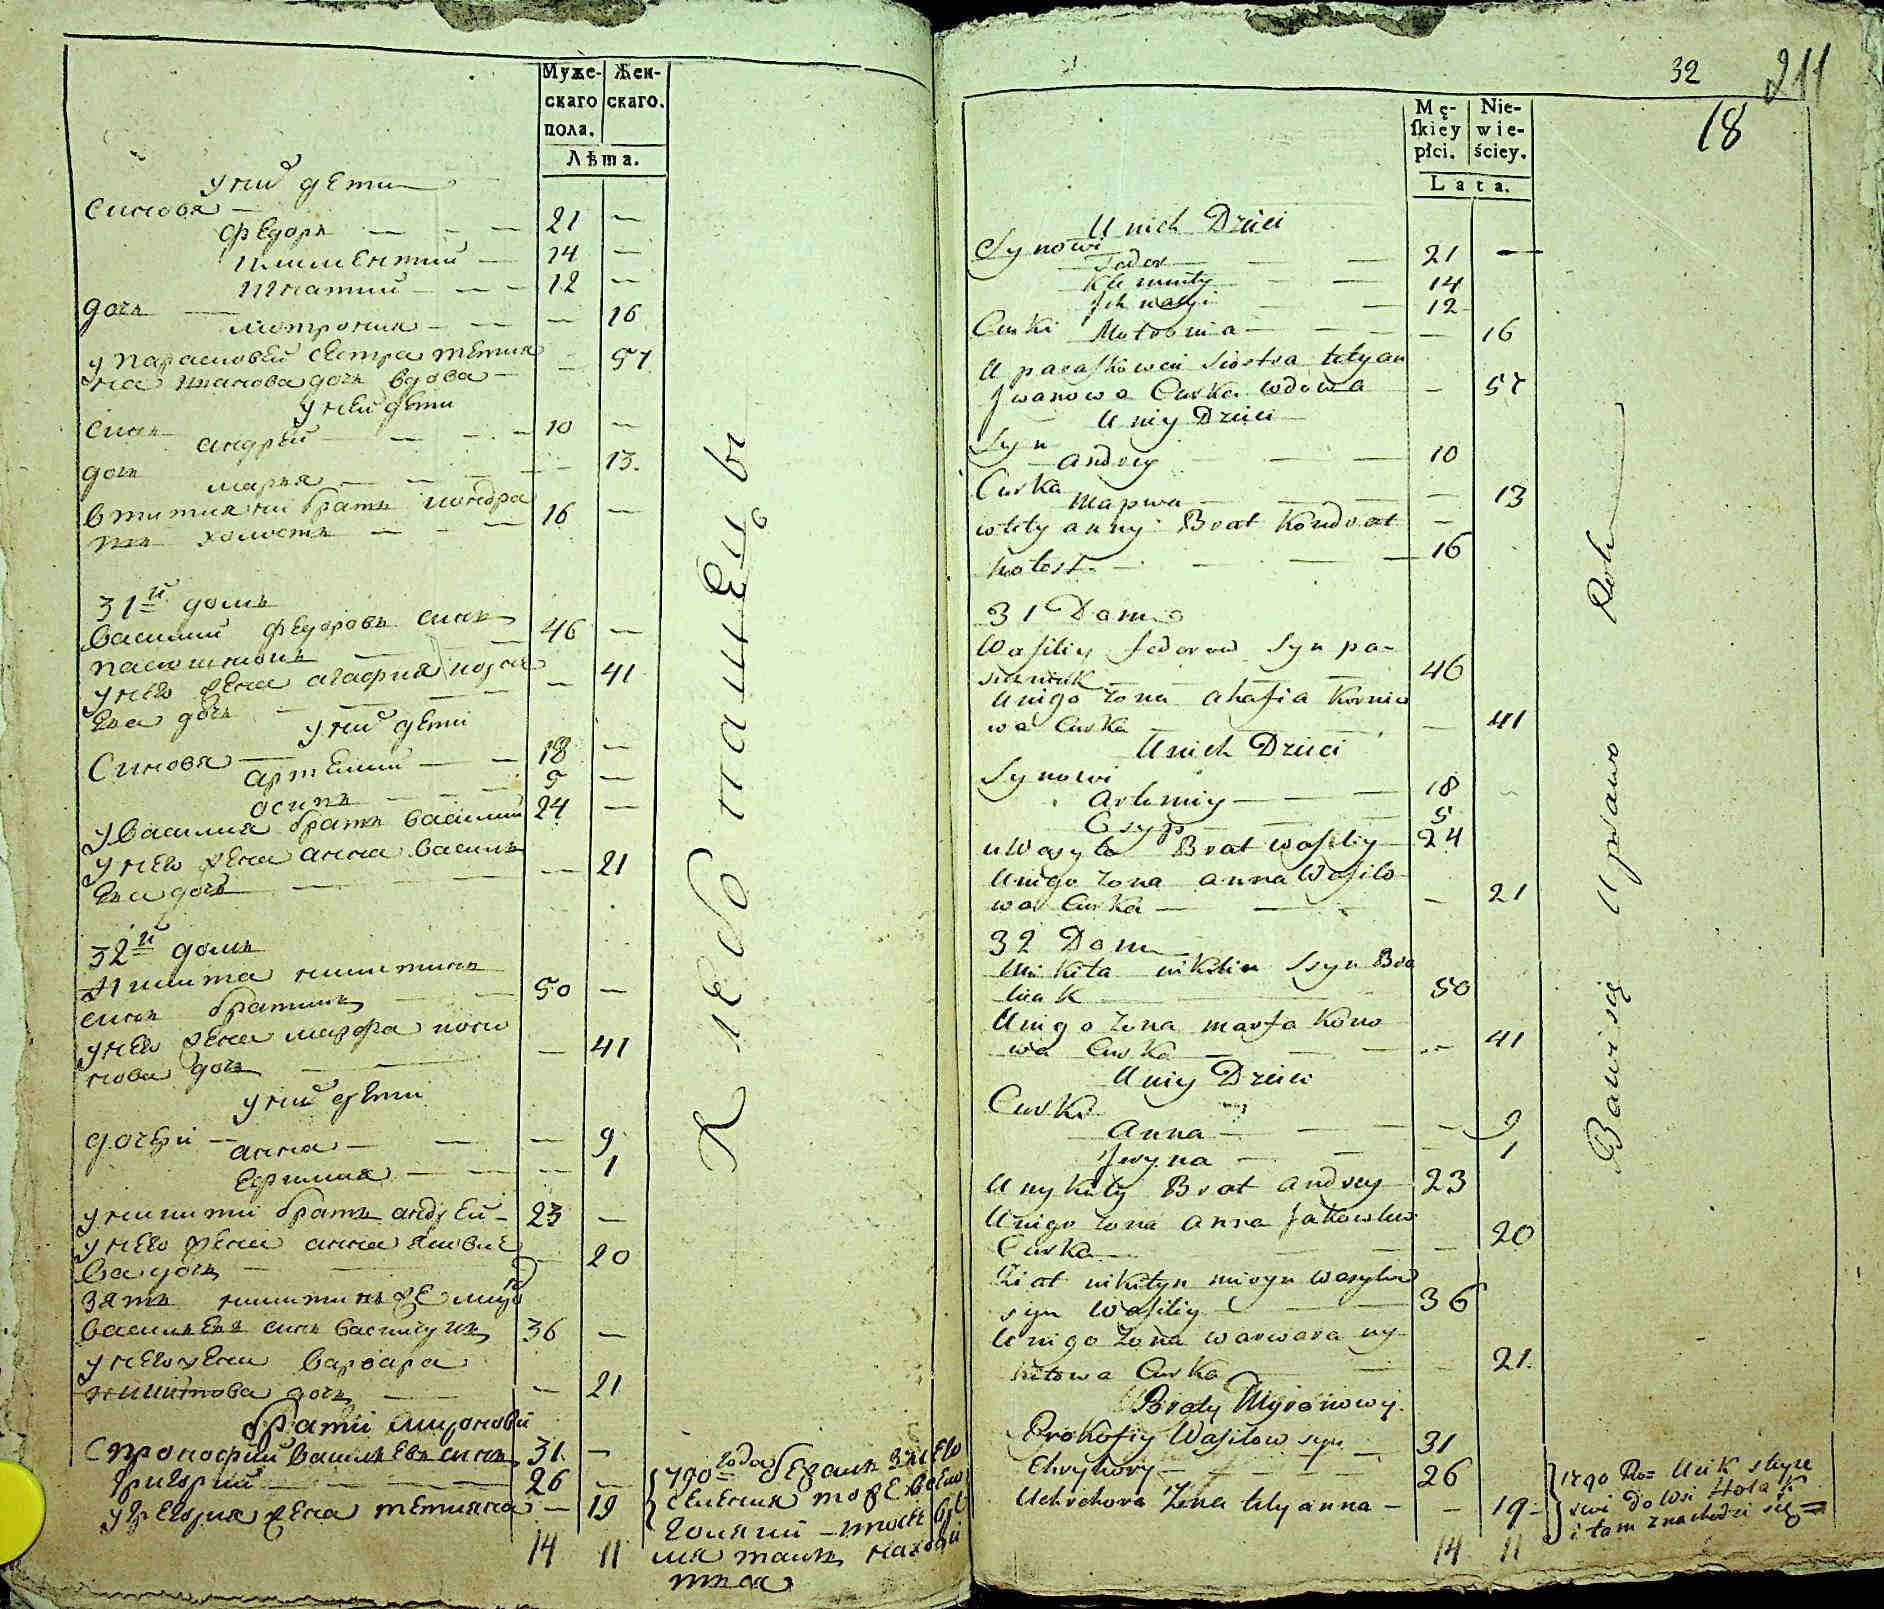 Муже- Жен-
скаго скаго.
пола.
Лѣта.
у них дети
Синовя —
Федоръ — — — 21 —
Климентий — 14 —
Игнатий — — — 12 —
дочь — Мотрония — — — — 16
у Парасковеи сестра Тетия
на Иванова дочь вдова — — 57
у неи дети
Синъ Андрей — — — 10 —
дочь Мария — — — — 13.
в Титияни братъ Кондра
тъ холостъ — — — 16 —
31й домъ
Василий Федоровъ синъ
пасюшнокъ — — 46 —
у него жена Агафия Корни
ева дочь — — — 41
у них дети
Синовя —
Артемий — — 18 —
Осипъ — — — 5 —
у Василия братъ Василий 24 —
у него жена Анна Василь
ева дочь — — — — 21
32й домъ
Никита Никитинъ
синъ братникъ — — 50 —
у него жена Марфа Коно
нова дочь — — — 41
у них дети
дочери — Анна — — — 9
Ефимия — — — 1
у Никити братъ Андрей — 23 —
у него жена Анна Яковле
ва дочь — — — 20
зять Никитинъ же Миро
Васильевъ синъ Василий 36 —
у него жена Варвара
Никитова дочь — — — 21
братии Миронови
Прокофий Васильевъ синъ 31. —
Григорий — — — 26 —
у Грегория жена Тетияна — — 19
14 11
790 года
К ле б па ш Е ц ъ
32
211
18
Mę- Nie-
skiey wie-
płci. ściey.
Lata.
U nich Dzieci
Synowi
Fedor — — — 21 —
Klemunty — — 14
Jhnacyi — — 12
Curki Motronia — — — — 16
U paraskowei siostra tetyan
Jwanowa Curka wdowa — 57
U niy Dzieci
Syn
Andrey — — — 10
Curka
Marya — — — 13
w tetyanny Brat Kondrat —
holost — — — 16
31 Dom
Wasiliy Fedorow Syn pa-
siusznik — — — 46
U nigo zona ahafia Kornie
wa Curka — — — 41
U nich Dzieci
Synowi
Artemiy — — — 18
Osyp — — — 5
u Wasyla Brat Wasiliy — 24
U nigo zona anna Wasilo
wa Curka — — — 21
32 Dom
Mikita nikitin Ssyn Bra
tniak — — — 50
U nigo zona marfa Kono
wa Curka — — — 41
U niy Dzieci
Curki
Anna — — — — 9
Jwyna — — — 1
U nykity Brat andrey — 23
U nigo zona anna Jakowlew
Curka — — — 20
Ziat nikityn miryn Wasylew
syn Wasiliy — — — 36
U nigo zona warwara ny
kitowa Curka — — 21.
Braty Myronowy.
Prokofiy Wasilow syn — 31
Chryhory — — — — 26
U chrehora Zena tetyanna — — 19 —
14 11
1790 Ro= Ucik
do Wsi
i tam znachodzi się =
Bawisie Uprawo Roli